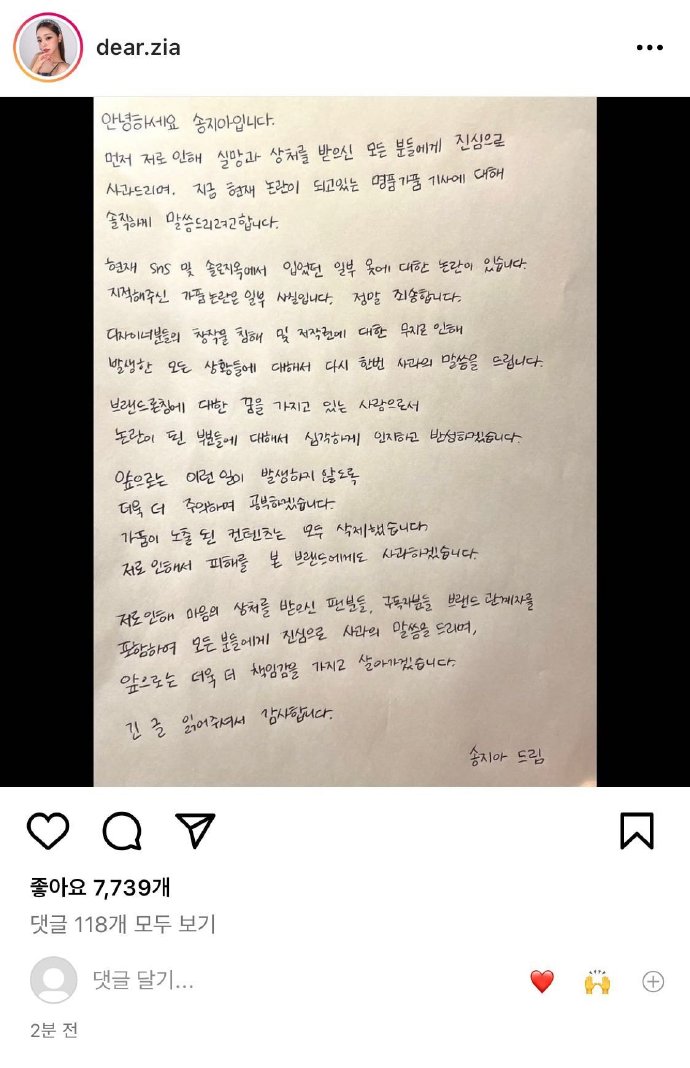 dear.zia
안녕하세요 송지아입니다.
먼저 저로 인해 실망과 상처를 받으신 모든 분들에게 진심으로
사과드리며, 지금 현재 논란이 되고있는 명품가품 기사에 대해
솔직하게 말씀드리려고합니다.
현재 sns 및 솔로지옥에서 입었던 일부 옷에 대한 논란이 있습니다.
지적해주신 가품논란은 일부 사실입니다. 정말 죄송합니다.
디자이너분들의 창작물 침해 및 저작권에 대한 무지로 인해
발생한 모든 상황들에 대해서 다시 한번 사과의 말씀을 드립니다.
브랜드론칭에 대한 꿈을 가지고 있는 사람으로서
논란이 된 부분들에 대해서 심각하게 인지하고 반성하겠습니다.
앞으로는 이런 일이 발생하지 않도록
더욱 더 주의하며 공부하겠습니다.
가품이 노출 된 컨텐츠는 모두 삭제했습니다
저로 인해서 피해를 본 브랜드에게도 사과하겠습니다.
저로인해 마음의 상처를 받으신 팬분들, 구독자분들 브랜드 관계자를
포함하여 모든 분들에게 진심으로 사과의 말씀을 드리며,
앞으로는 더욱 더 책임감을 가지고 살아가겠습니다.
긴 글 읽어주셔서 감사합니다.
송지아 드림
좋아요 7,739개
댓글 118개 모두 보기
댓글 달기...
2분 전